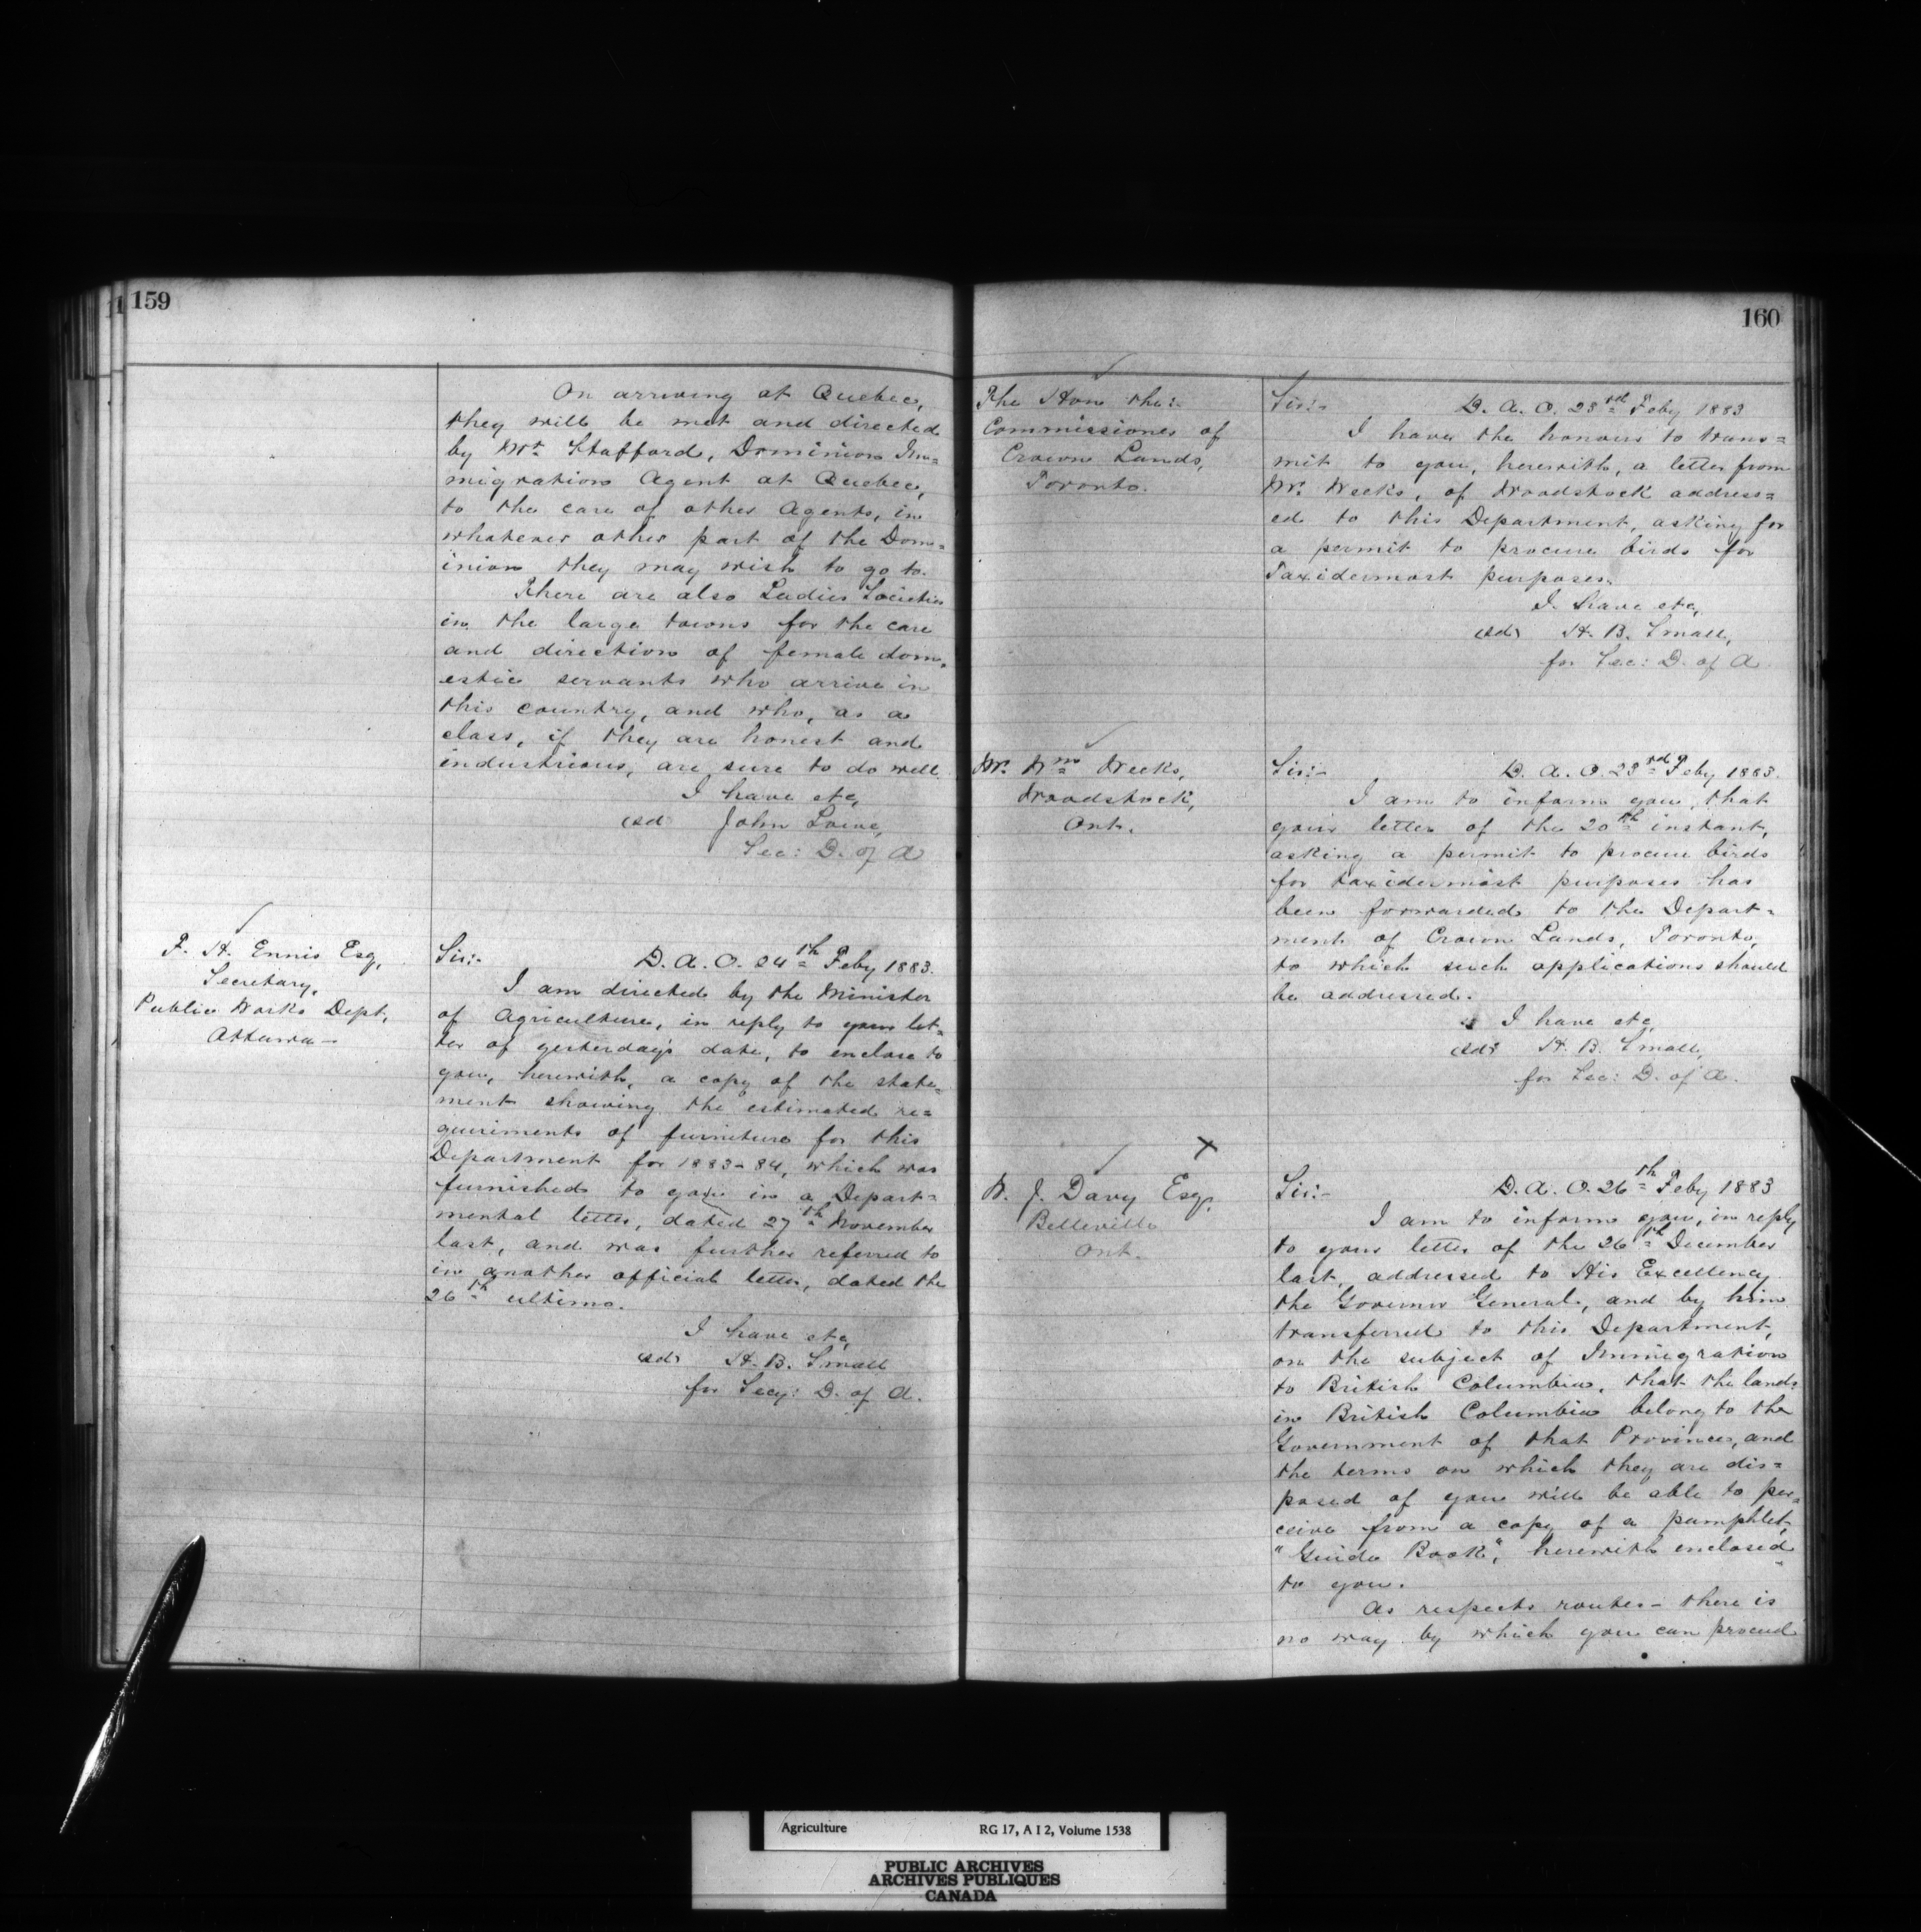 159
On arriving at Quebec,
they will be met and directed
by Mr. Stafford, Dominion Im=
migration Agent at Quebec,
to the care of other Agents, in
whatever other part of the Dom=
inion they may wish to go to.
There are also Ladies Societies
in the large towns for the care
and direction of female dom=
estic servants who arrive in
this country, and who, as a
class, if they are honest and
industrious, are sure to do well.
I have etc,
(sd) John Lowe,
Sec: D. of A
F. H. Ennis Esq,
Secretary,
Public Works Dept,
Ottawa—
Sir:- D. A. O. 24th Feby 1883.
I am directed by the Minister
of Agriculture, in reply to your let=
ter of yesterday's date, to enclose to
you, herewith, a copy of the state=
ment showing the estimated re=
quiriments of furniture for this
Department for 1883-84, which was
furnished to you in a Depart=
mental letter, dated 27th November
last, and was further referred to
in another official letter, dated the
26th ultimo.
I have etc,
(sd) H. B. Small
for Secy: D. of A.
160
The Hon the:
Commissioner of
Crown Lands,
Toronto.
Sir:- D. A. O. 23rd Feby 1883
I have the honour to trans=
mit to you, herewith, a letter from
Mr. Weeks, of Woodstock address=
ed to this Department, asking for
a permit to procure birds for
Taxidermost purposes.
I have etc,
(sd) H. B. Small,
for Sec: D. of A
Mr. Wm Weeks,
Woodstock,
Ont.
Sir:- D. A. O. 23rd Feby 1883.
I am to inform you, that
your letter of the 20th instant,
asking a permit to procure birds
for taxidermist purposes has
been forwarded to the Depart=
ment of Crown Lands, Toronto,
to which such applications should
be addressed.
I have etc,
(sd) H. B. Small,
for Sec: D. of A.
X
W. J. Davy Esq,
Belleville
Ont.
Sir:- D. A. O. 26th Feby 1883
I am to inform you, in reply
to your letter of the 26th December
last, addressed to His Excellency
the Governor General, and by him
transferred to this Department,
on the subject of Immigration
to British Columbia, that the lands
in British Columbia belong to the
Government of that Province, and
the terms on which they are dis=
posed of you will be able to per=
ceive from a copy of a pamphlet,
"Guide Book", herewith enclosed
to you.
As respects routes— there is
no way by which you can proceed
Agriculture RG 17, A I 2, Volume 1538
PUBLIC ARCHIVES
ARCHIVES PUBLIQUES
CANADA